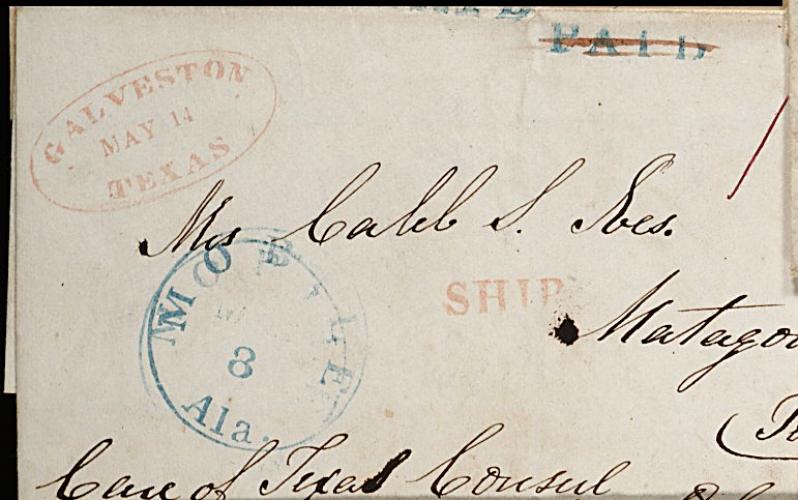 PAID
GALVESTON
MAY 14
TEXAS
Mrs Caleb S. Ives.
MOBILE
8
Ala.
SHIP
Matagor
Care of Texas Consul